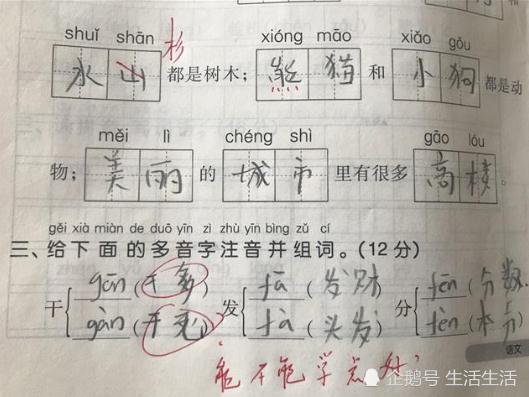 shuǐ shān 杉 xióng māo xiǎo gǒu
水山都是树木；熊猫和小狗都是动
měi lì chéng shì gāo lóu
物；美丽的城市里有很多高楼。
gěi xià miàn de duō yīn zì zhù yīn bìng zǔ cí
三、给下面的多音字注音并组词。(12分)
干 gān (干 发 fā (发财) 分 fēn (分数)
gàn (干 fà (头发) fèn (本分)
能不能学点好
语文
企鹅号 生活生活